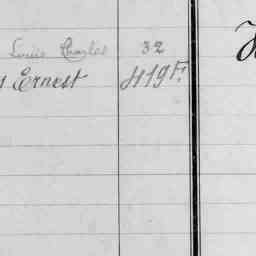 Louis Charles 32
Ernest 419F.